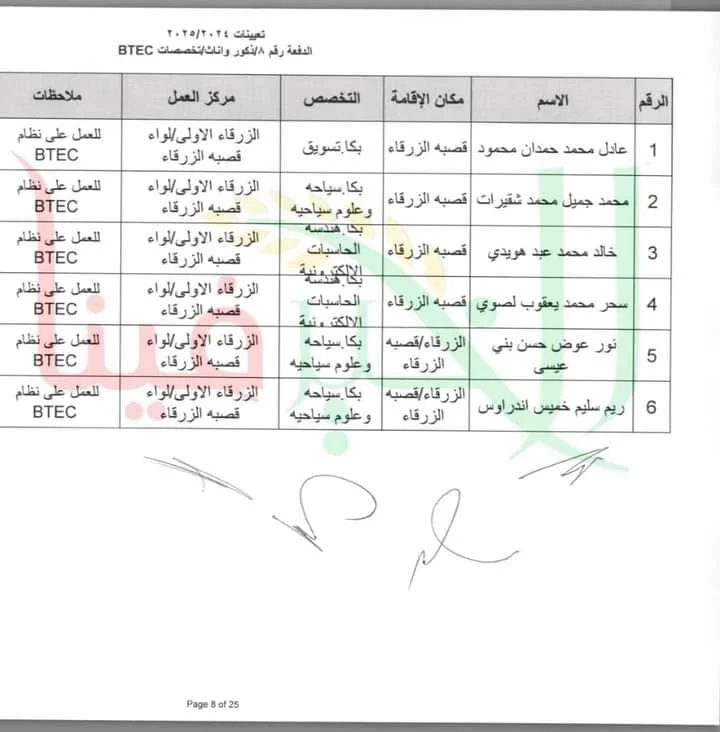 تعيينات ٢٠٢٥/٢٠٢٤
الدفعة رقم ٨/ذكور واناث/تخصصات BTEC
الرقم الاسم مكان الإقامة التخصص مركز العمل ملاحظات
1 عادل محمد حمدان محمود قصبه الزرقاء بكا.تسويق الزرقاء الاولى/لواء قصبه الزرقاء للعمل على نظام BTEC
2 محمد جميل محمد شقيرات قصبه الزرقاء بكا.سياحه وعلوم سياحيه الزرقاء الاولى/لواء قصبه الزرقاء للعمل على نظام BTEC
3 خالد محمد عبد هويدي قصبه الزرقاء بكا.هندسه الحاسبات الالكترونية الزرقاء الاولى/لواء قصبه الزرقاء للعمل على نظام BTEC
4 سحر محمد يعقوب لصوي قصبه الزرقاء بكا.هندسه الحاسبات الالكترونية الزرقاء الاولى/لواء قصبه الزرقاء للعمل على نظام BTEC
5 نور عوض حسن بني عيسى الزرقاء/قصبه الزرقاء بكا.سياحه وعلوم سياحيه الزرقاء الاولى/لواء قصبه الزرقاء للعمل على نظام BTEC
6 ريم سليم خميس اندراوس الزرقاء/قصبه الزرقاء بكا.سياحه وعلوم سياحيه الزرقاء الاولى/لواء قصبه الزرقاء للعمل على نظام BTEC
Page 8 of 25